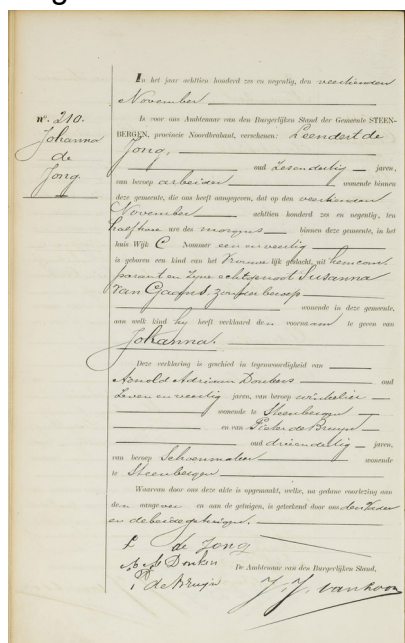 nº. 210.
Johanna
de
Jong
In het jaar achttien honderd zes en negentig, den veertienden
November
Is voor ons Ambtenaar van den Burgerlijken Stand der Gemeente STEEN-
BERGEN, provincie Noordbrabant, verschenen: Leendert de
Jong,
oud zesendertig jaren,
van beroep arbeider wonende binnen
deze gemeente, die ons heeft aangegeven, dat op den veertienden
November achttien honderd zes en negentig, ten
half ure des morgens binnen deze gemeente, in het
huis Wijk C Nommer een en veertig
is geboren een kind van het Vrouwelijk geslacht, uit hem com-
parant en zijne echtgenoot Susanna
van zonder beroep
wonende in deze gemeente,
aan welk kind hij heeft verklaard den voornaam te geven van
Johanna.
Deze verklaring is geschied in tegenwoordigheid van
Arnold Adrianus Donkers oud
zeven en veertig jaren, van beroep winkelier
wonende te Steenbergen
en van Pieter de Bruijn
oud drieendertig jaren,
van beroep Schoenmaker wonende
te Steenbergen
Waarvan door ons deze akte is opgemaakt, welke, na gedane voorlezing aan
den aangever en aan de getuigen, is geteekend door ons den Vader
en de beide getuigen.
L de Jong
A A Donkers
P de Bruijn
De Ambtenaar van den Burgerlijken Stand,
J. J. van Loon